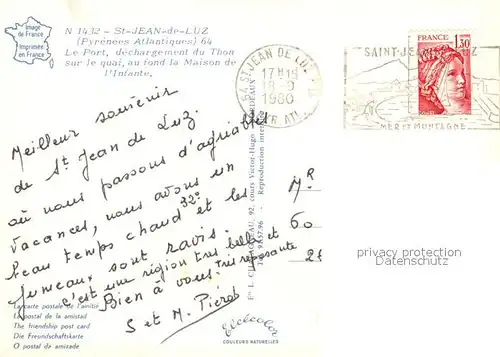 Image
de France
Imprimée
en France
N 1432 - St-JEAN-de-LUZ
(Pyrénées Atlantiques) 64
Le Port, déchargement du Thon
sur le quai, au fond la Maison de
l'Infante.
64 ST JEAN DE LUZ
17H15
1980
PYR ATL
SAINT JEAN DE LUZ
MER et MONTAGNE
1,30
FRANCE
Meilleur souvenir
de St Jean de Luz.
où nous passons d'agréables
vacances, nous avons un
beau temps chaud 32° et les
jumeaux sont ravis.
c'est une région très belle et
très reposante
Bien à vous.
S et M. Pierot
Mr
60
La carte postale de l'amitié
La postal de la amistad
The friendship post card
Die Freundschaftskarte
O postal da amizade
92, cours Victor-Hugo
Reproduction interdite
Elcécolor
COULEURS NATURELLES
privacy protection
Datenschutz